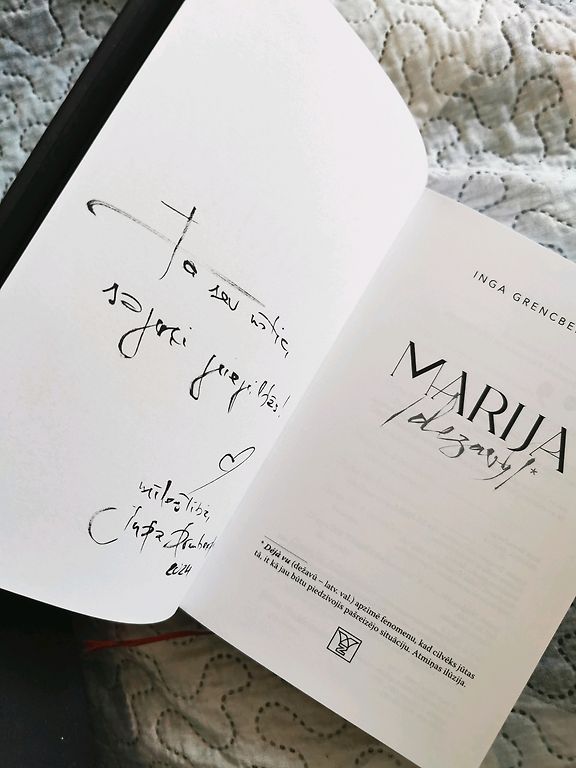 Ja sev tic,
sapņi piepildās!
mīlestībā,
Inga
2024
INGA GRENCBE
MARIJA
/dežavu/*
* Déjà vu (dežavū – latv. val.) apzīmē fenomenu, kad cilvēks jūtas
tā, it kā jau būtu piedzīvojis pašreizējo situāciju. Atmiņas ilūzija.